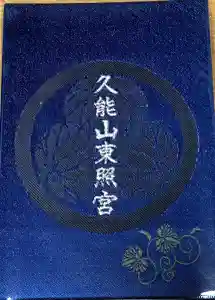 久能山東照宮